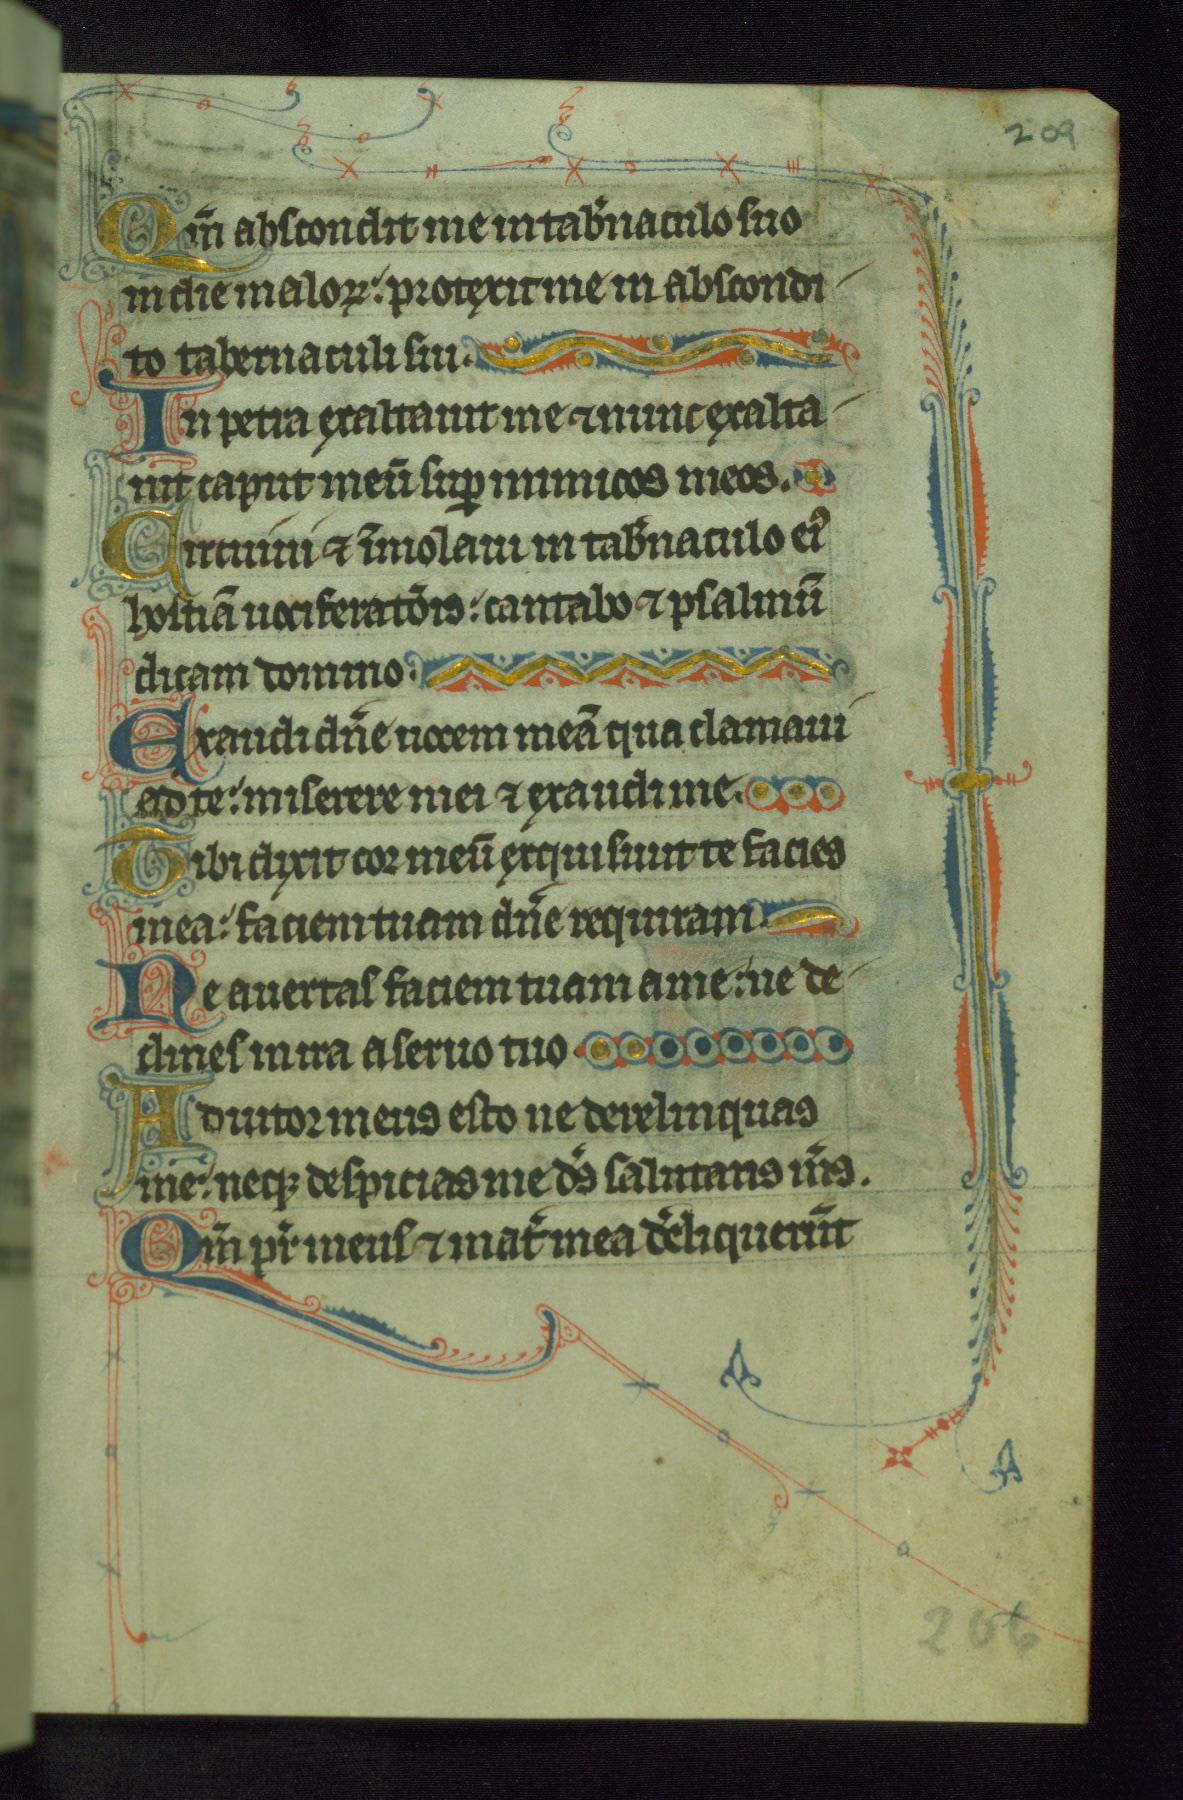 209
Qm̄ abscondit me in tab̄naculo suo
in die maloꝝ: protexit me in abscondi
to tabernaculi sui.
In petra exaltauit me ⁊ nunc exalta
uit caput meū suꝑ inimicos meos.
Circuiui ⁊ īmolaui in tab̄naculo eiꝰ
hostiā uociferatōis: cantabo ⁊ psalmū
dicam domino.
Exaudi dn̄e uocem meā qua clamaui
ad te: miserere mei ⁊ exaudi me.
Tibi dixit cor meū exquisiuit te facies
mea: faciem tuam dn̄e requiram.
Ne auertas faciem tuam a me: ne de
clines in ira a seruo tuo.
Adiutor meus esto ne derelinquas
me: neqꝫ despicias me ds̄ salutaris m̄s.
Qm̄ pr̄ meus ⁊ mat̄ mea d̄eliquerūt
206